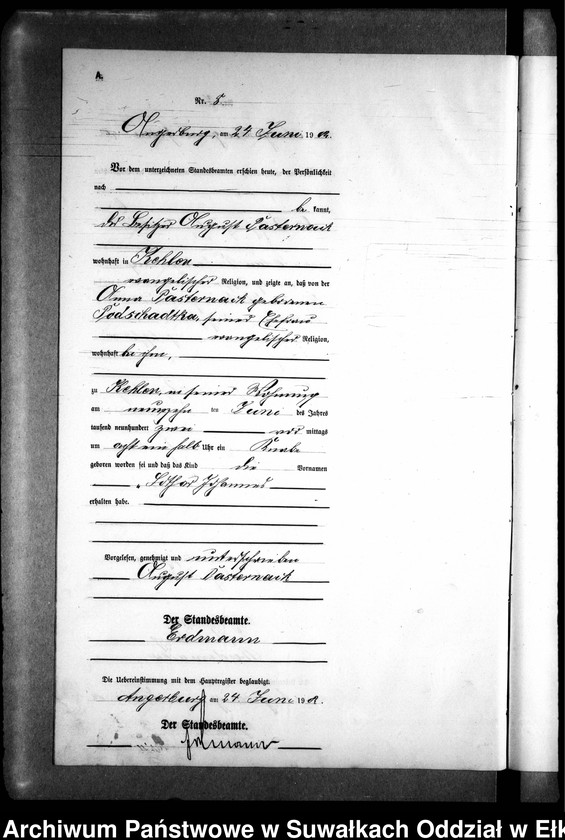 A.
Nr. 5
Angerburg, am 24 Juni 1902
Vor dem unterzeichneten Standesbeamten erschien heute, der Persönlichkeit
nach
be kannt,
der Besitzer August Pasternack
wohnhaft in Kehlen
evangelischer Religion, und zeigte an, daß von der
Anna Pasternack geborenen
Podschadtka, seiner Ehefrau
evangelischer Religion,
wohnhaft bei ihm,
zu Kehlen, in seiner Wohnung
am neunzehn ten Juni des Jahres
tausend neunhundert zwei vor mittags
um acht ein halb Uhr ein Knabe
geboren worden sei und daß das Kind die Vornamen
Johannes
erhalten habe.
Vorgelesen, genehmigt und unterschrieben
August Pasternack
Der Standesbeamte.
Erdmann
Die Uebereinstimmung mit dem Hauptregister beglaubigt.
Angerburg am 24 Juni 1902.
Der Standesbeamte.
Erdmann
Archiwum Państwowe w Suwałkach Oddział w Ełk